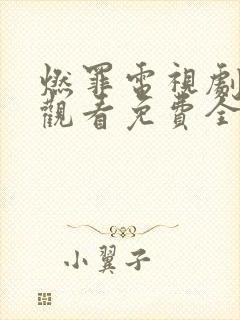 燃罪電視劇
觀看免費全
小翼子